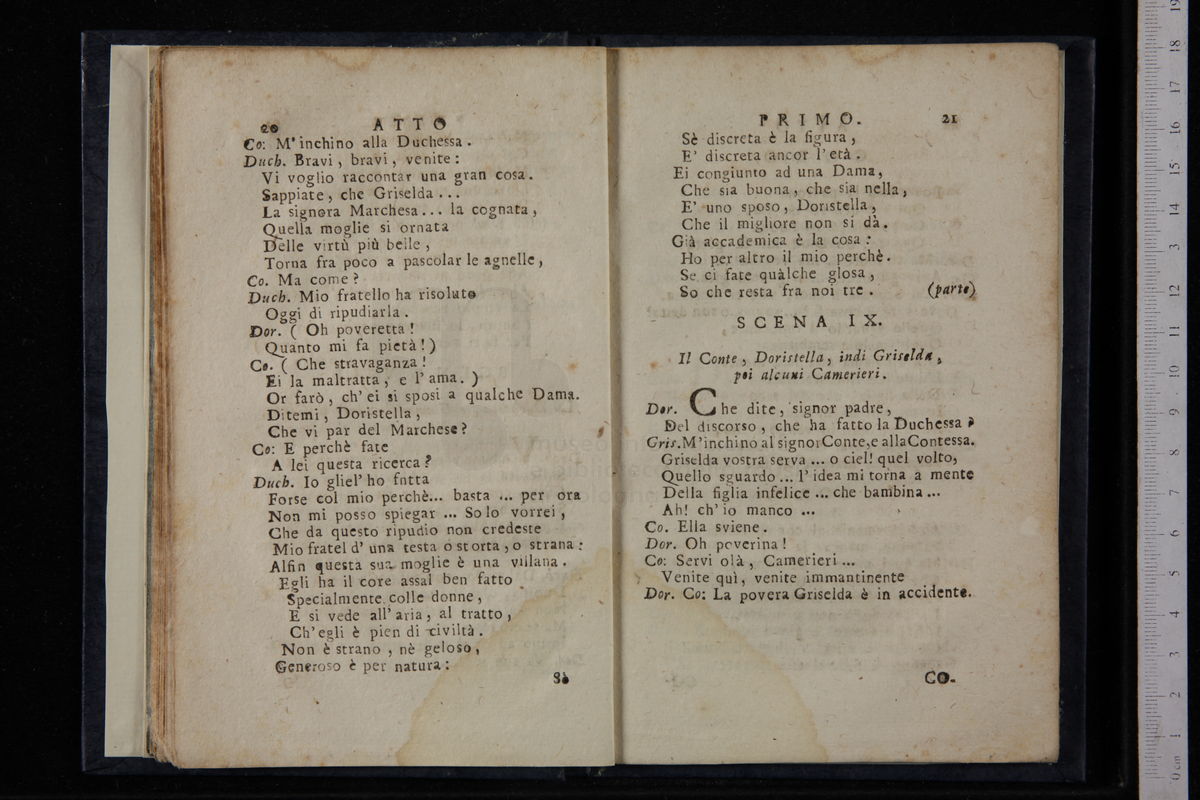 20 ATTO
Co: M'inchino alla Duchessa.
Duch. Bravi, bravi, venite:
Vi voglio raccontar una gran cosa.
Sappiate, che Griselda...
La signora Marchesa... la cognata,
Quella moglie sì ornata
Delle virtù più belle,
Torna fra poco a pascolar le agnelle,
Co. Ma come?
Duch. Mio fratello ha risoluto
Oggi di ripudiarla.
Dor. ( Oh poveretta!
Quanto mi fa pietà!)
Co. ( Che stravaganza!
Ei la maltratta, e l'ama. )
Or farò, ch'ei si sposi a qualche Dama.
Ditemi, Doristella,
Che vi par del Marchese?
Co: E perchè fate
A lei questa ricerca?
Duch. Io gliel' ho fntta
Forse col mio perchè... basta ... per ora
Non mi posso spiegar ... Solo vorrei,
Che da questo ripudio non credeste
Mio fratel d' una testa o storta, o strana:
Alfin questa sua moglie è una villana.
Egli ha il core assai ben fatto
Specialmente colle donne,
E si vede all'aria, al tratto,
Ch'egli è pien di civiltà.
Non è strano, nè geloso,
Generoso è per natura:
Sè
PRIMO. 21
Sè discreta è la figura,
E' discreta ancor l'età.
Ei congiunto ad una Dama,
Che sia buona, che sia nella,
E' uno sposo, Doristella,
Che il migliore non si dà.
Già accademica è la cosa:
Ho per altro il mio perchè.
Se ci fate quàlche glosa,
So che resta fra noi tre. (parte)
SCENA IX.
Il Conte, Doristella, indi Griselda,
poi alcuni Camerieri.
Dor. Che dite, signor padre,
Del discorso, che ha fatto la Duchessa?
Gris. M'inchino al signor Conte, e alla Contessa.
Griselda vostra serva ... o ciel! quel volto,
Quello sguardo ... l'idea mi torna a mente
Della figlia infelice ... che bambina ...
Ah! ch'io manco ...
Co. Ella sviene.
Dor. Oh poverina!
Co: Servi olà, Camerieri ...
Venite quì, venite immantinente
Dor. Co: La povera Griselda è in accidente.
CO-